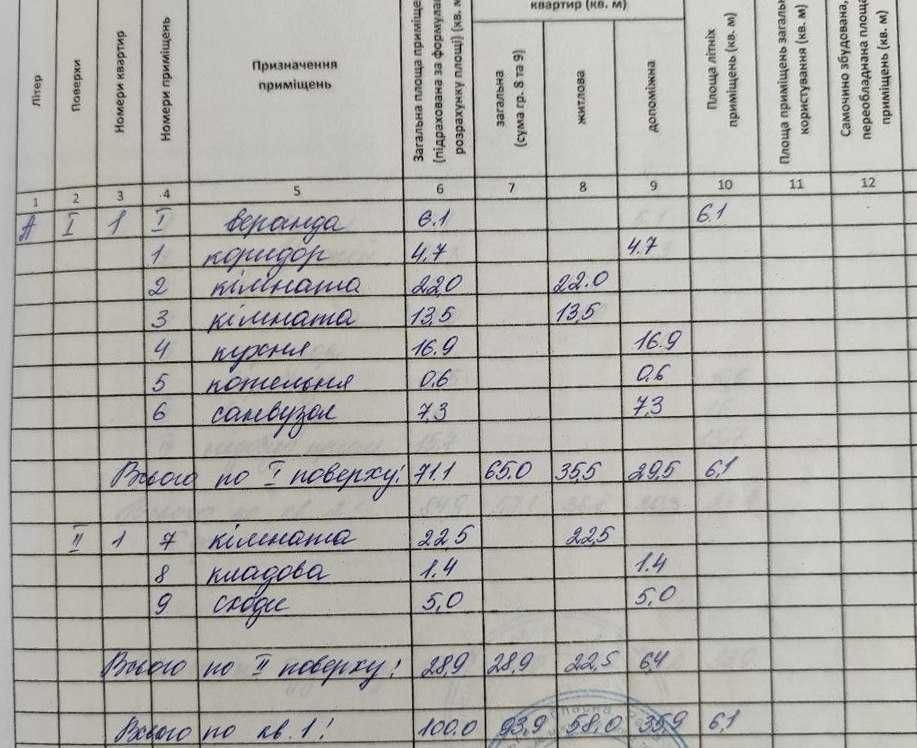 Літер
Поверхи
Номери квартир
Номери приміщень
Призначення
приміщень
Загальна площа приміщень
(підрахована за формулами
розрахунку площі) (кв. м)
квартир (кв. м)
загальна
(сума гр. 8 та 9)
житлова
допоміжна
Площа літніх
приміщень (кв. м)
Площа приміщень загального
користування (кв. м)
Самочинно збудована,
переобладнана площа
приміщень (кв. м)
1 2 3 4 5 6 7 8 9 10 11 12
А I 1 I веранда 6.1 6.1
1 коридор 4.7 4.7
2 кімната 22,0 22.0
3 кімната 13,5 13,5
4 кухня 16.9 16.9
5 котельня 0.6 0.6
6 санвузол 7,3 7,3
Всього по I поверху: 71.1 65.0 35,5 29,5 6,1
II 1 7 кімната 22,5 22,5
8 кладова 1.4 1.4
9 сходи 5,0 5,0
Всього по II поверху: 28,9 28,9 22,5 6,4
Всього по кв. 1: 100.0 93,9 58,0 35,9 6,1